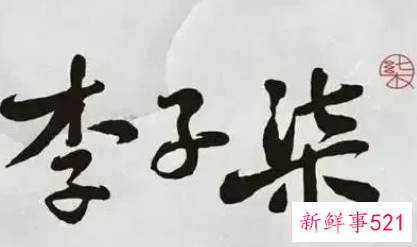 李子柒
新鲜事521